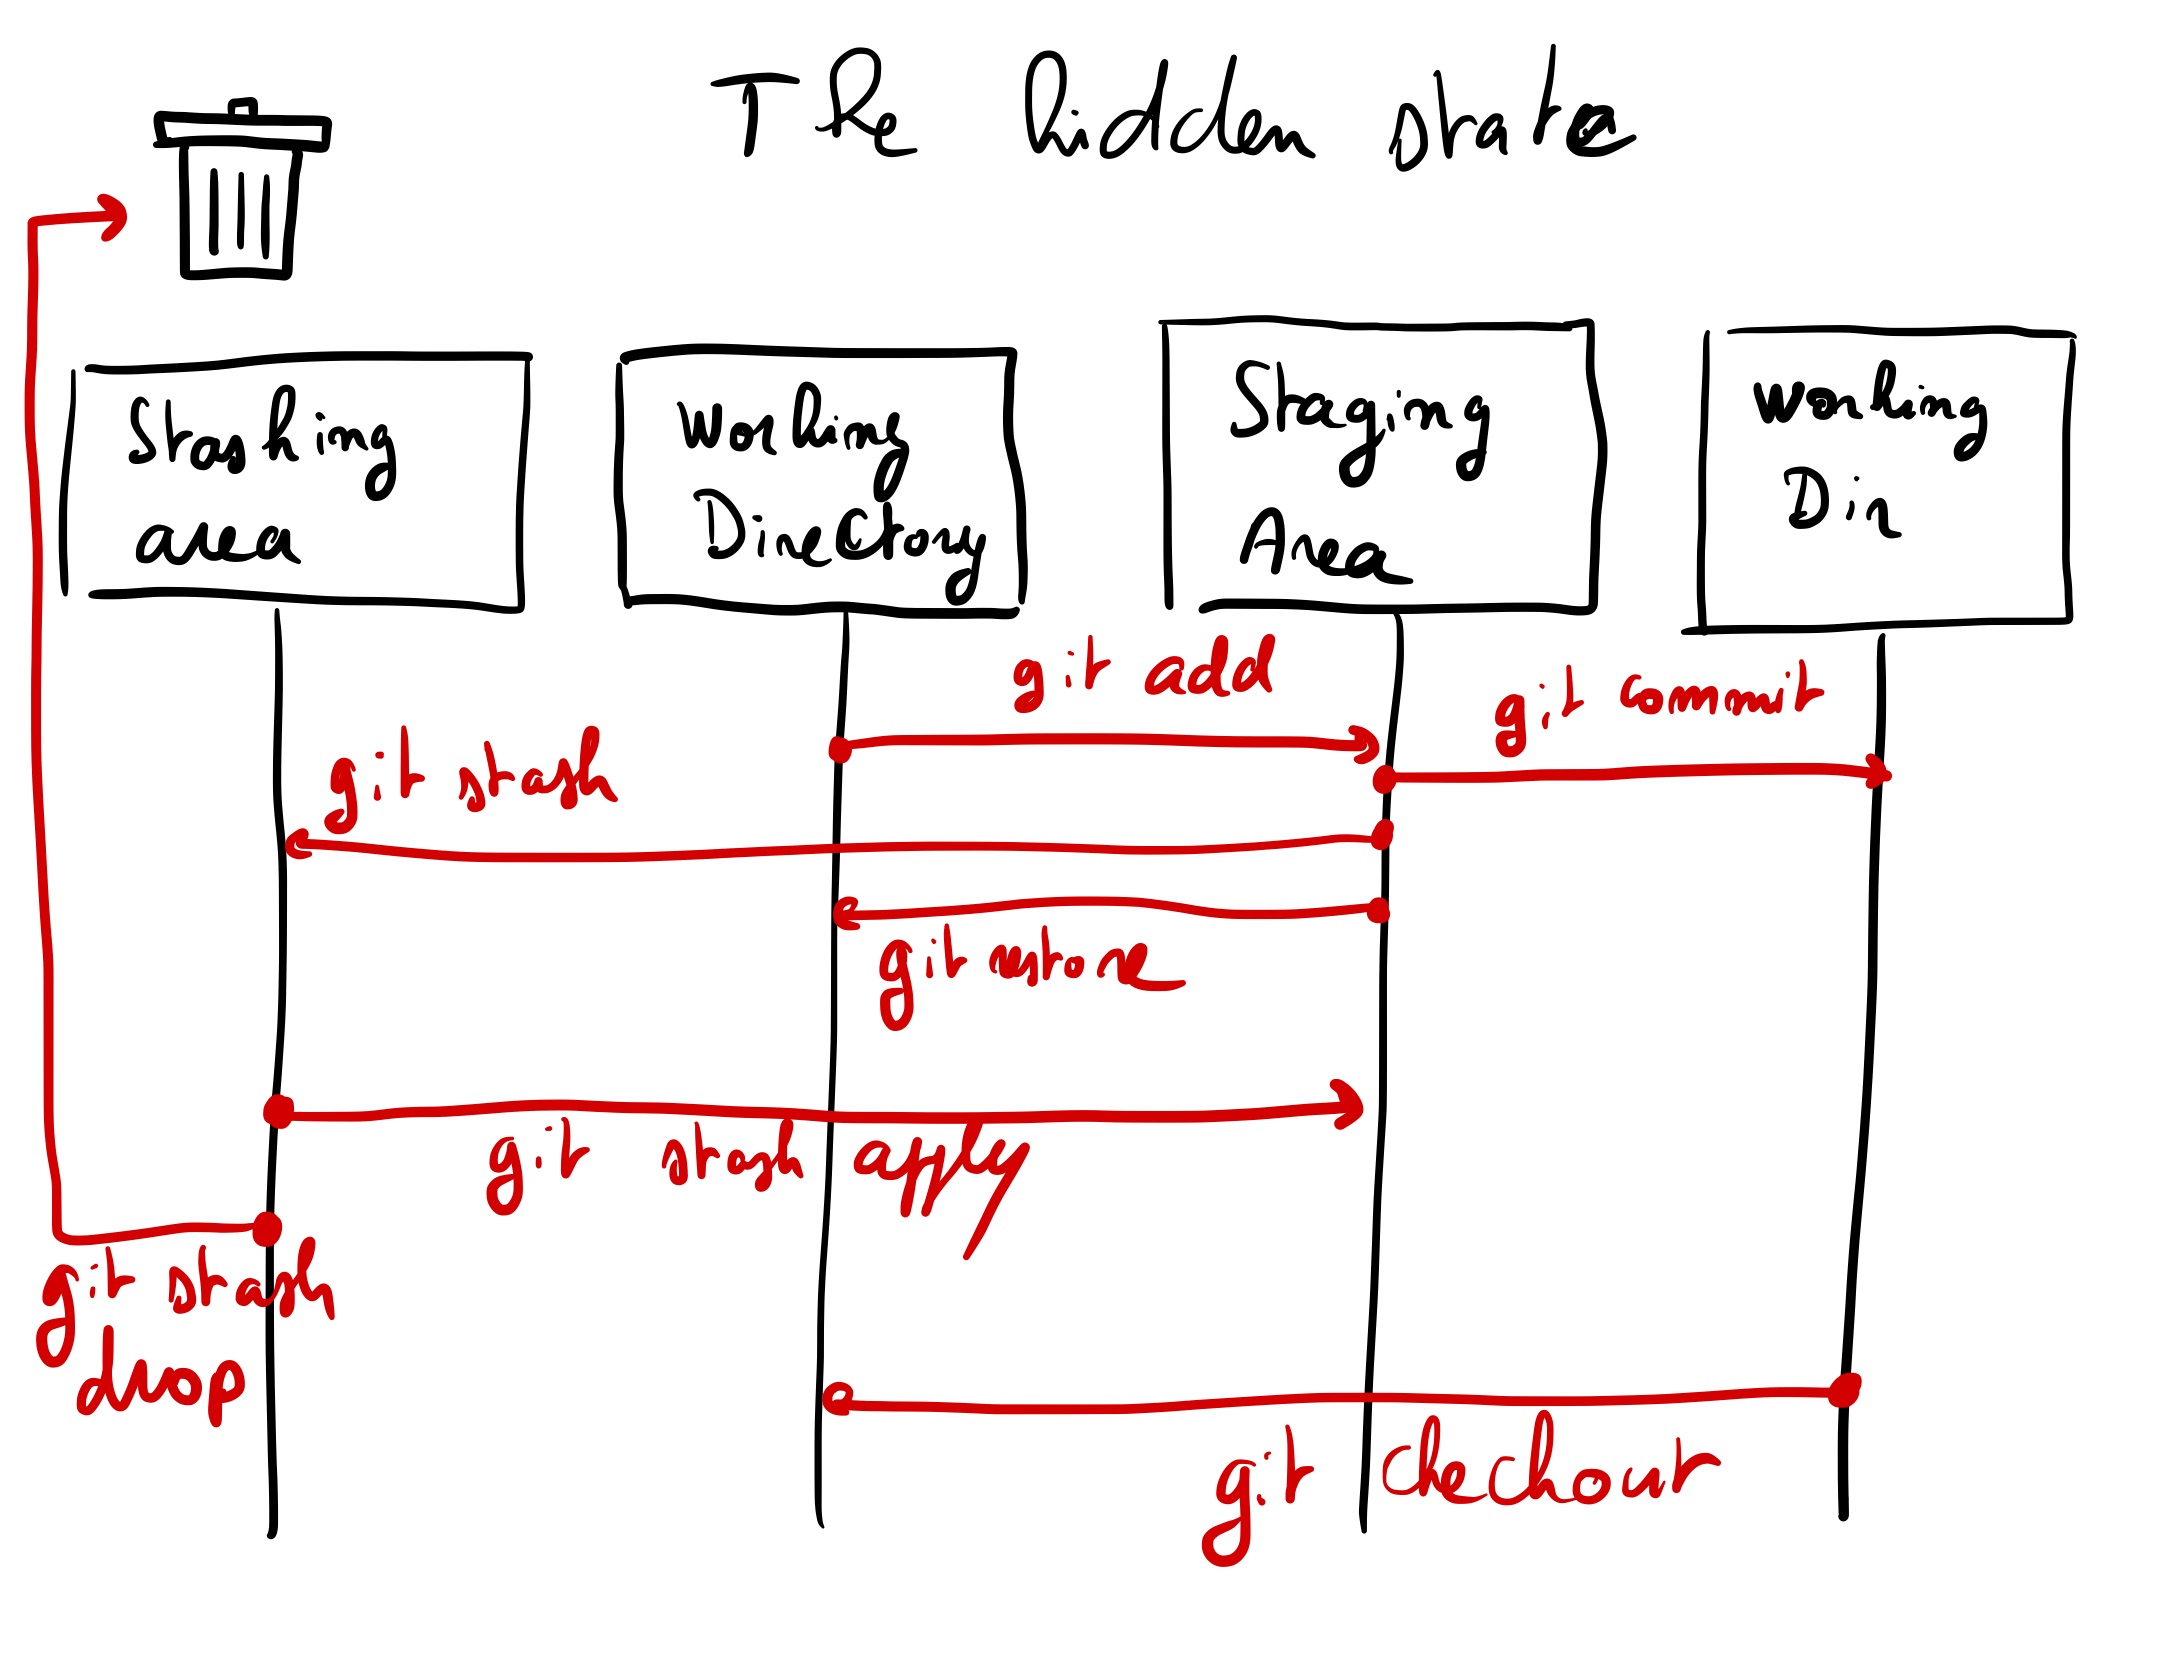 The hidden state
Stashing
area
Working
Directory
Staging
Area
Working
Dir
git add
git commit
git stash
git restore
git stash apply
git stash
drop
git checkout